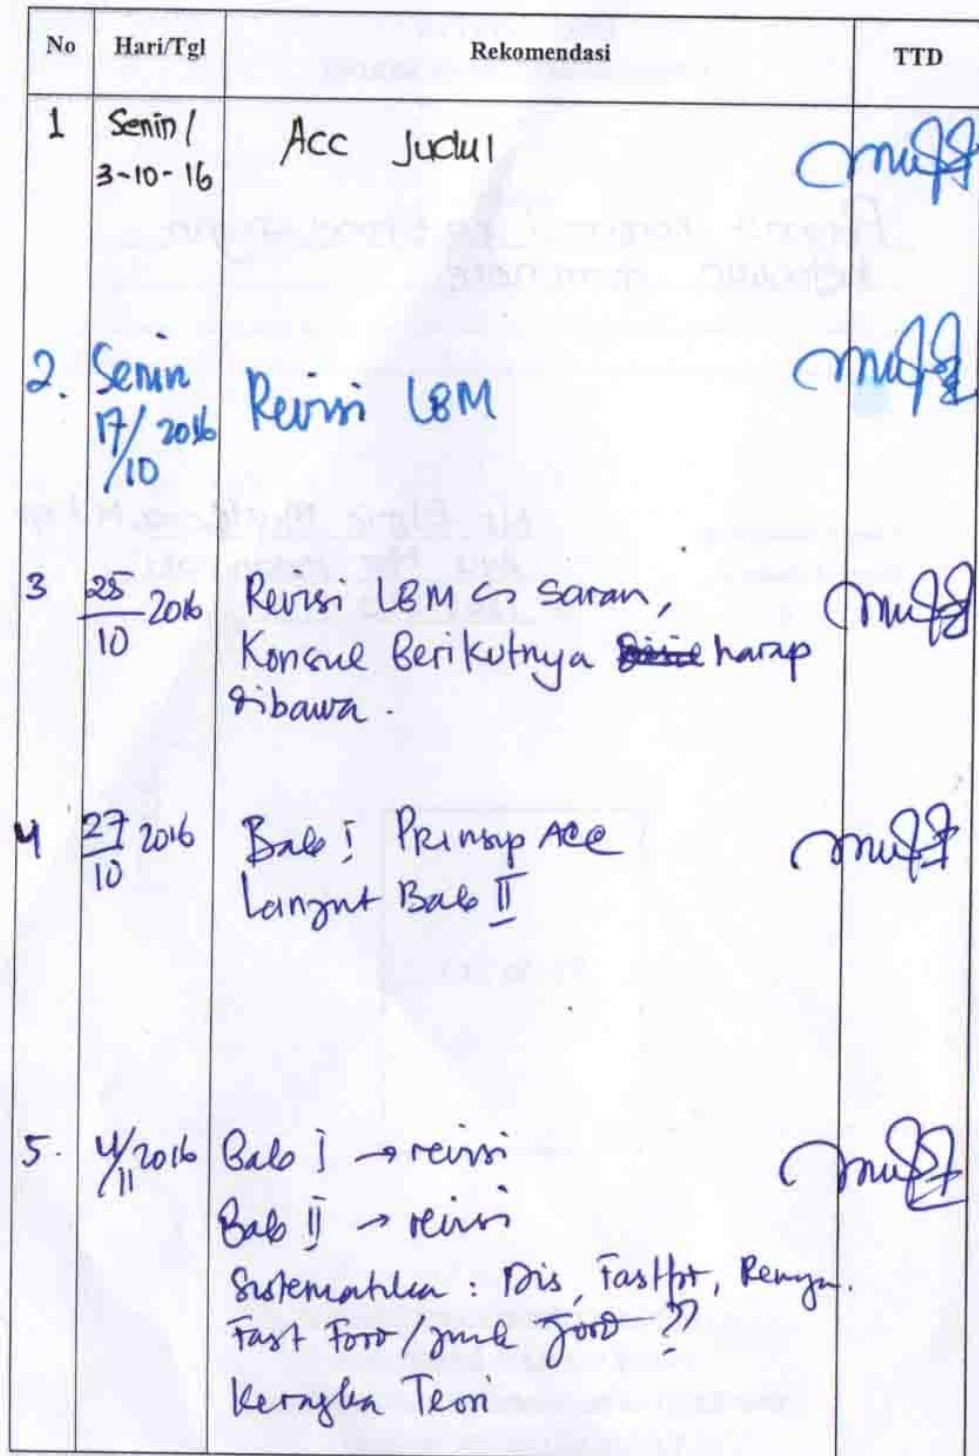 No Hari/Tgl Rekomendasi TTD
1 Senin/ Acc Judul
3-10-16
2. Senin Revisi LBM
17/10 2016
3 25/10 2016 Revisi LBM saran,
Konsul Berikutnya harap
dibawa.
4 27/10 2016 Bab I Prinsip Acc
Lanjut Bab II
5. 4/11 2016 Bab I → revisi
Bab II → revisi
Sistematika : Dis, Fastfot, Remja.
Fast Food/junk food ??
Kerangka Teori